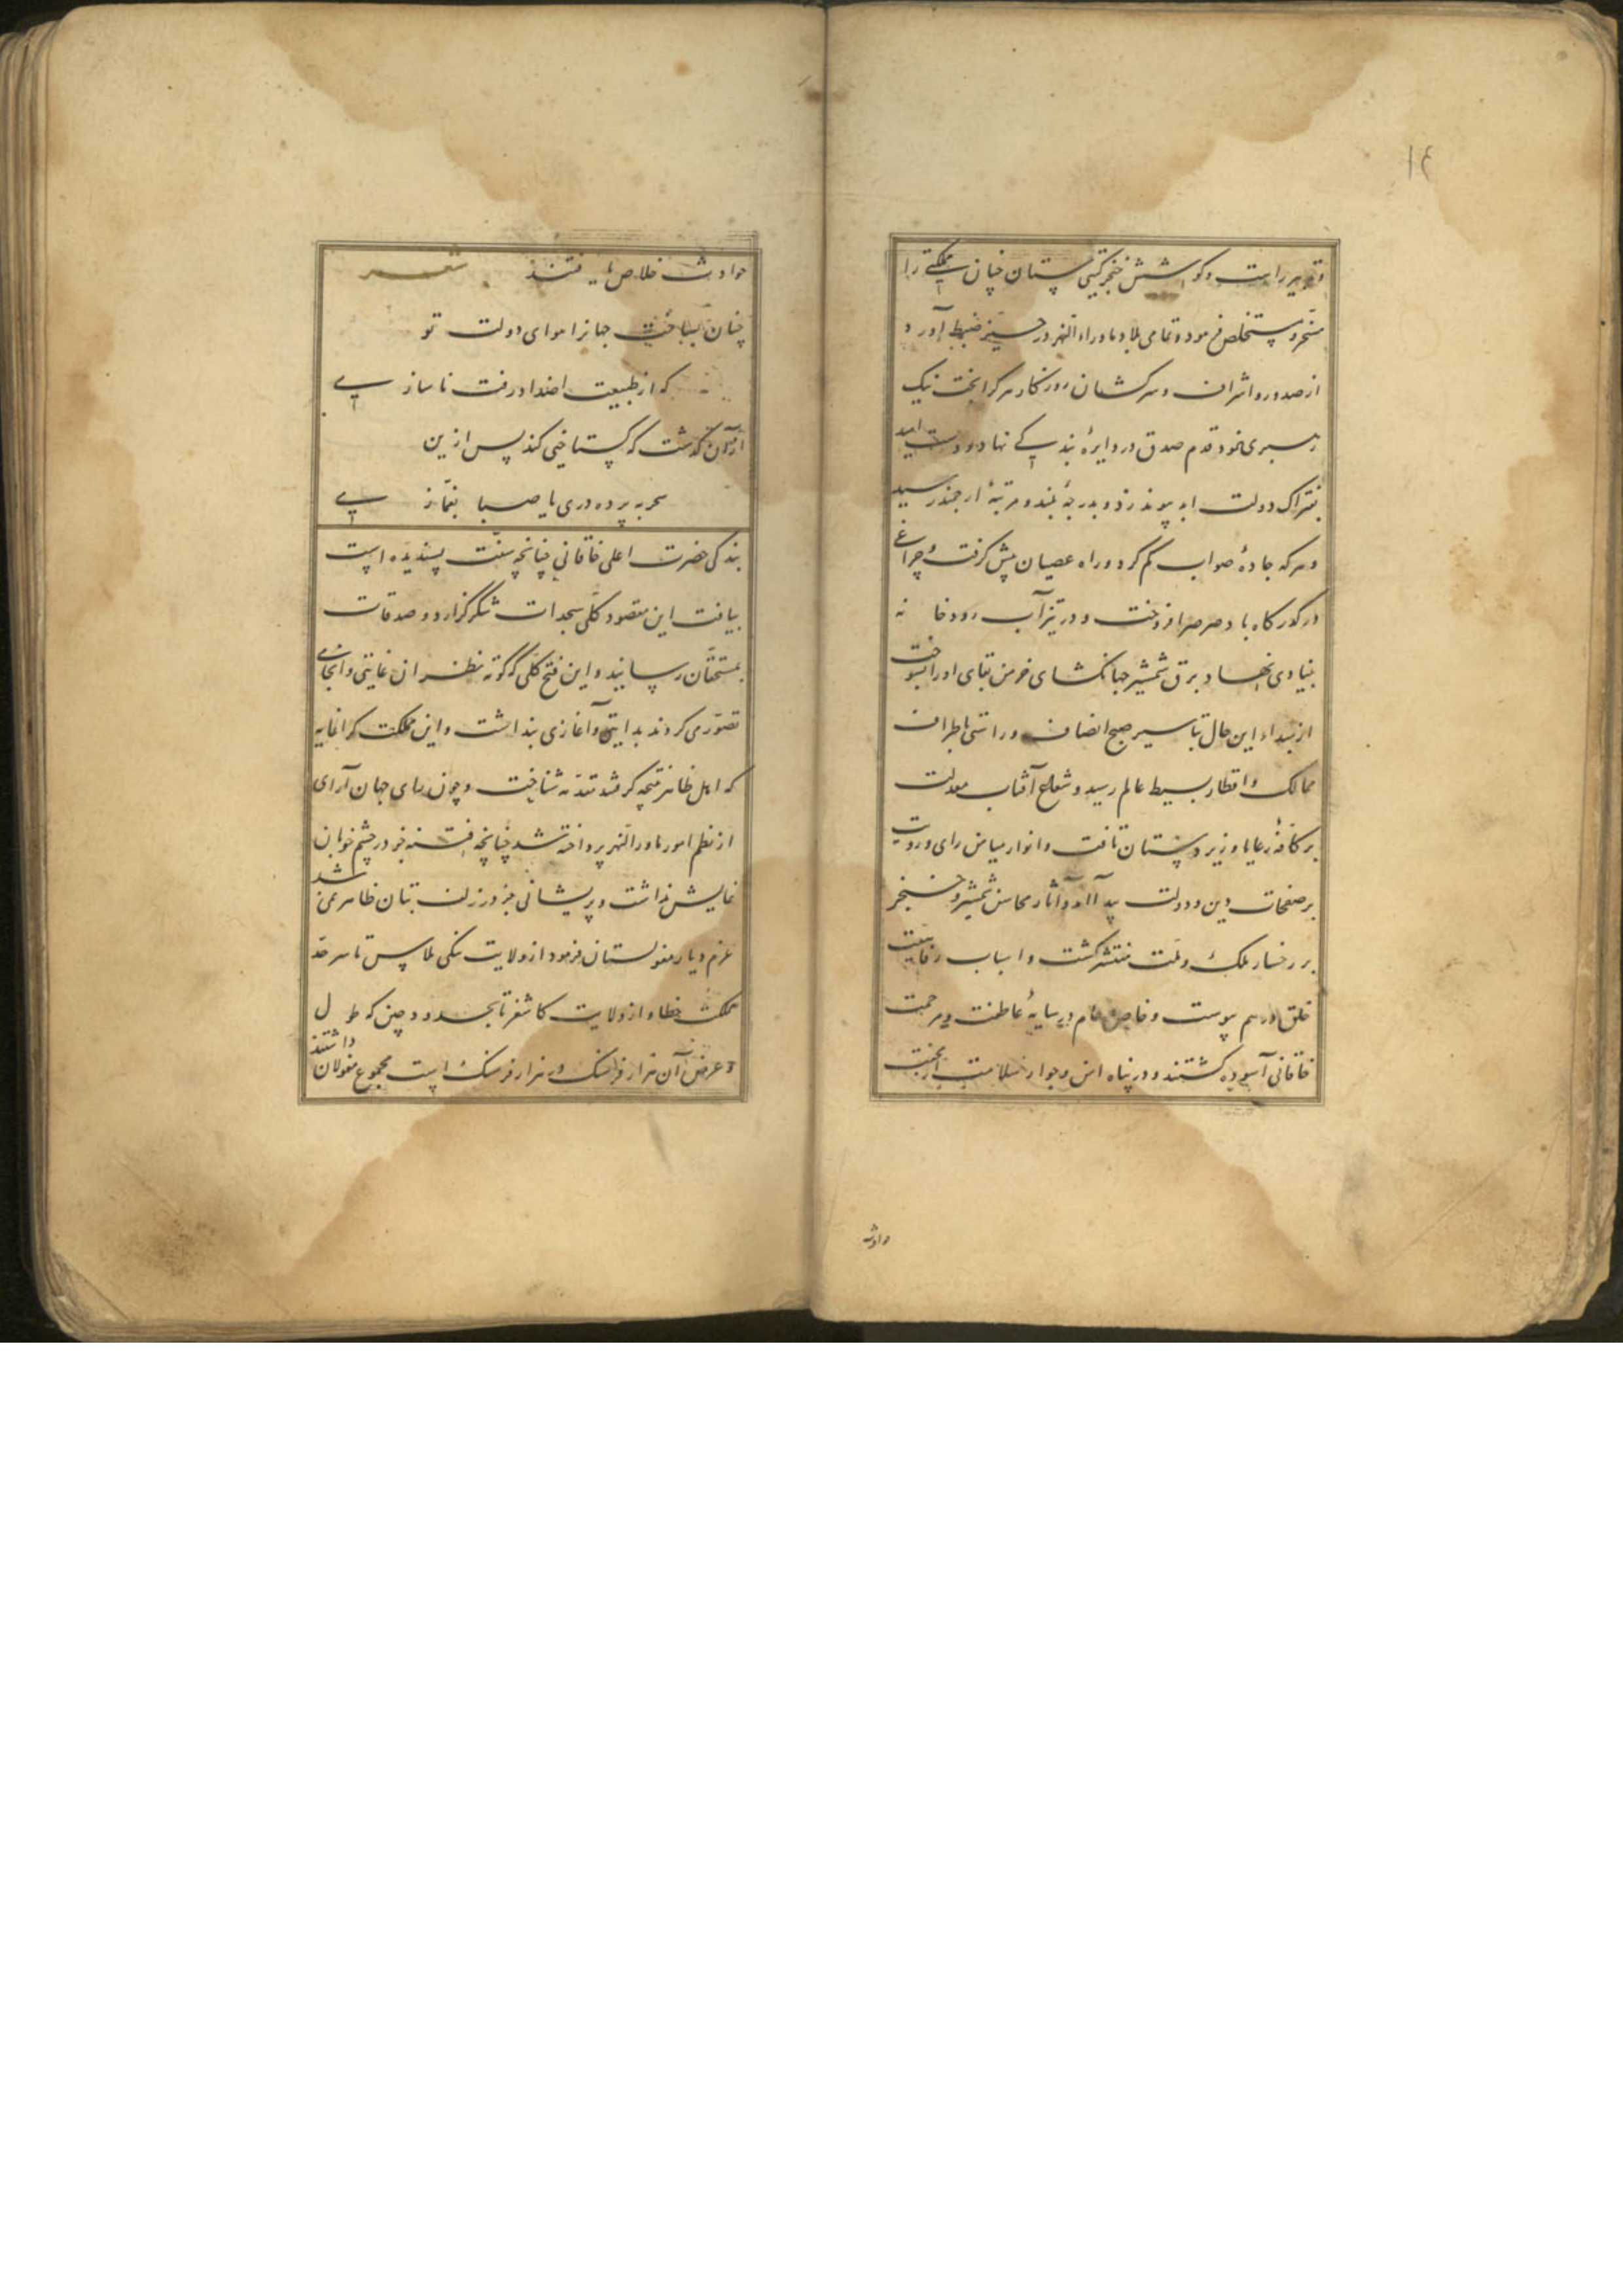 ١٤
و تدبیر راست و کوشش خنجر گیتی ستان چنان مملکتی را
مسخر و مستخلص فرمود و تمامی بلاد ماوراء النهر در حیز ضبط آورد و
از صدور و اشراف و سرکشان روزگار هرکرا بخت نیک
رهبری نمود قدم صدق در دایرهٔ بندگی نهاد و دست امید
بفتراک دولت ابد پیوند زد و بدرجهٔ بلند و مرتبهٔ ارجمند رسید
و هرکه جادهٔ صواب گم کرد و راه عصیان پیش گرفت چراغی
در گذرگاه باد صرصر افروخت و در تیزآب رودخانه
بنیادی نهاد و برق شمشیر جهانگشای خرمن بقای او را بسوخت
از مبداء این حال تباشیر صبح انصاف و راستی باطراف
ممالک و اقطار بسیط عالم رسید و شعاع آفتاب معدلت
بر کافهٔ رعایا و زیردستان تافت و انوار میامن رای و رویت
بر صفحات دین و دولت پیدا آمد و آثار محاسن شمشیر و خنجر
بر رخسار ملک و ملت منتشر گشت و اسباب رفاهیت
خلق درهم پیوست و خاص و عام در سایهٔ عاطفت و مرحمت
خاقانی آسوده گشتند و در پناه امن و جوار سلامت از نکبت
حوادث
حوادث خلاص یافتند شعر
چنان بساخت جهانرا هوای دولت تو
که از طبیعت اضداد رفت ناسازی
از آن گذشت که گستاخی کند پس ازین
سحر به پرده دری یا صبا بغمازی
بندگی حضرت اعلی خاقانی چنانچه سنت پسندیده است
بیافت این مقصود کلی سجدات شکر گزارد و صدقات
بمستحقان رسانید و این فتح کلی که کوته نظران غایتی و انجامی
تصوری کردند بدایتی و آغازی پنداشت و این مملکت گرانمایه
که اهل ظاهر نتیجه گرفتند مقدمه شناخت و چون رای جهان آرای
از نظم امور ماوراالنهر پرداخته شد چنانچه فتنه جز در چشم خوبان
نمایش نداشت و پریشانی جز در زلف بتان ظاهر نمی شد
عزم دیار مغولستان فرمود از ولایت ینکی طلاس تا سرحد
مملکت خطا و از ولایت کاشغر تا بحدود چین که طول
و عرض آن هزار فرسنگ در هزار فرسنگ است مجموع مغولان داشتند